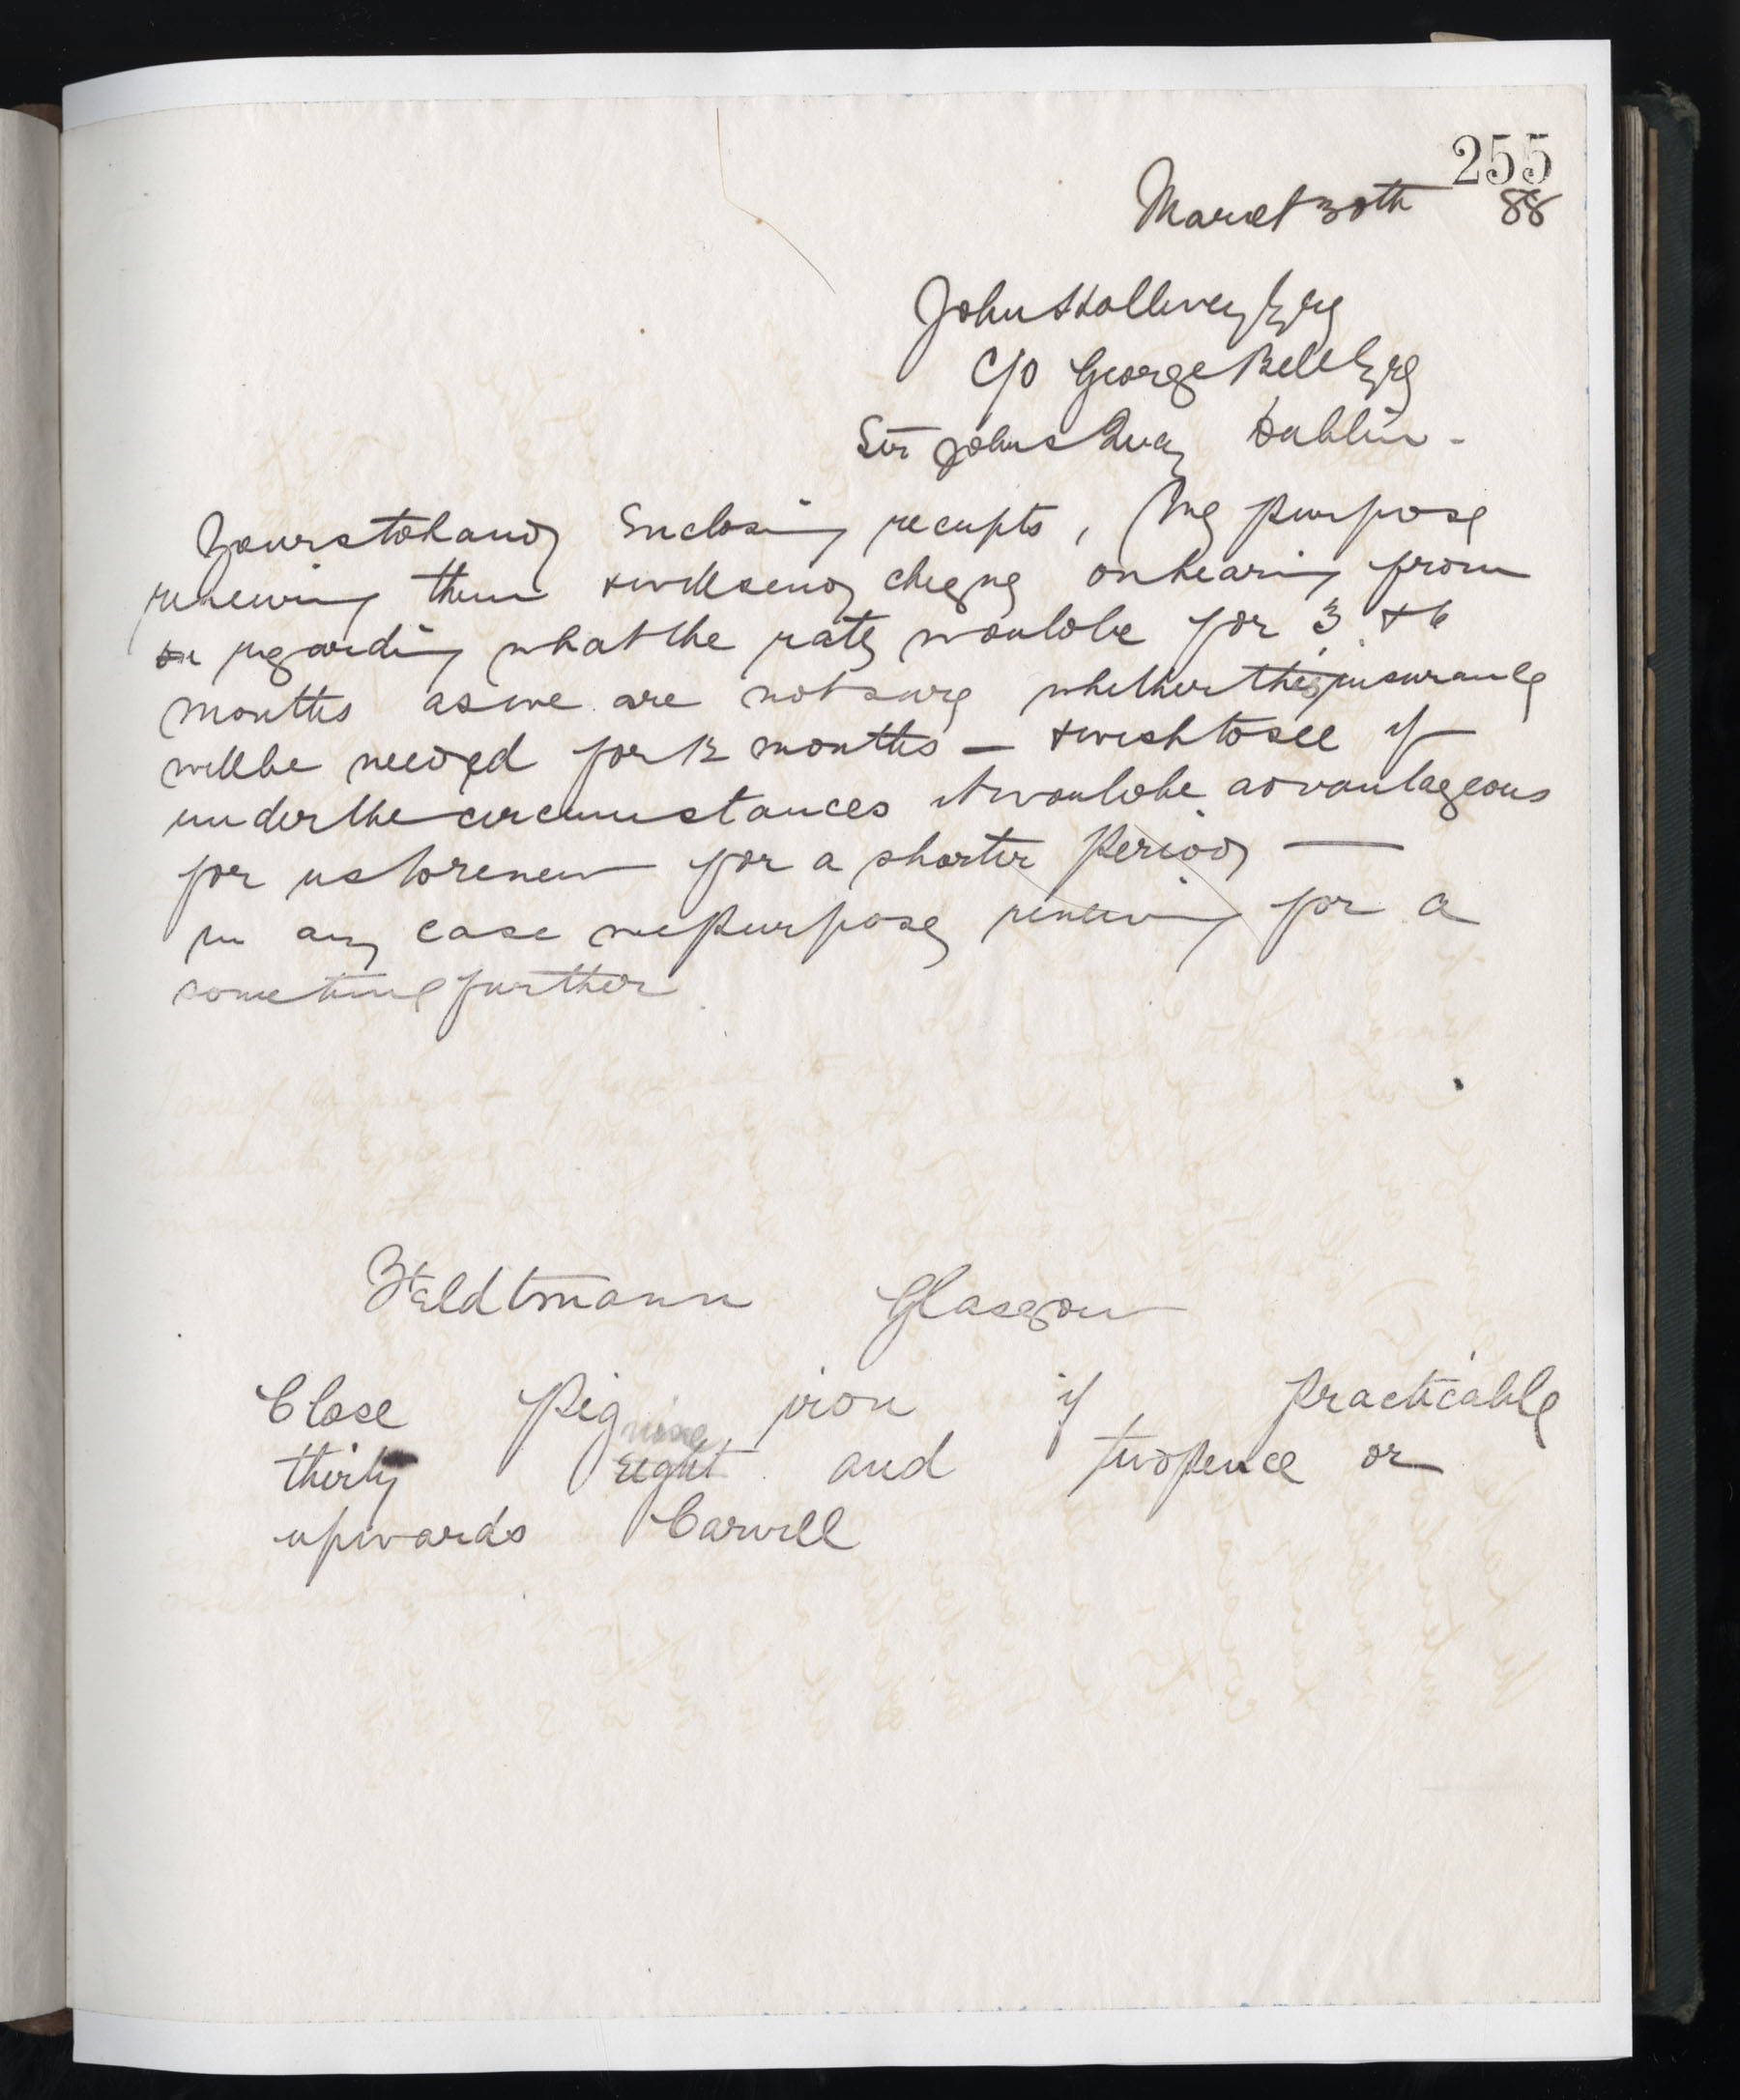 255
March 30th 88
John Hallivey Esq
C/o George Bell Esq
Sir Johns Quay Dublin -
Yours to hand Enclosing receipts, We purpose
renewing them & will send cheque on hearing from
regarding what the rate would be for 3 & 6
months as we are not sure whether the insurance
will be needed for 12 months - & wish to see if
under the circumstances it would be advantageous
for us to renew for a shorter period —
in any case we purpose renewing for a
sometime further
Feldtmann Glasgow
Close Pig iron if practicable
nine
thirty eight and twopence or
upwards Carvill